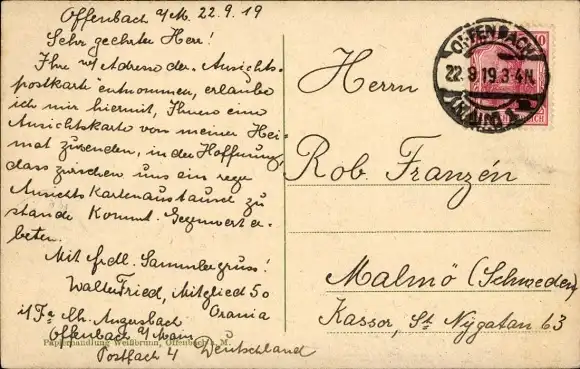 Offenbach a/M. 22.9.19
Sehr geehrter Herr!
Ihre w/ Adresse der „Ansichts-
postkarte" entnommen, erlaube
ich mir hiermit, Ihnen eine
Ansichtskarte von meiner Hei-
mat zuzusenden, in der Hoffnung,
dass zwischen uns ein rege
Ansichtskartenaustausch zu
stande kommt. Gegenwert er-
beten.
Mit frdl. Sammlergruss!
Walter Fried, Mitglied 50
Orania
i/Fa Ch. Augsbach
Offenbach a/Main
Postfach 4 Deutschland
Papierhandlung Weißbrunn, Offenbach a. M.
OFFENBACH
22.9.19.3-4N.
(MAIN)
10
REICH
Herrn
Rob. Franzén
Malmö (Schweden)
Kassor, St. Nygatan 63